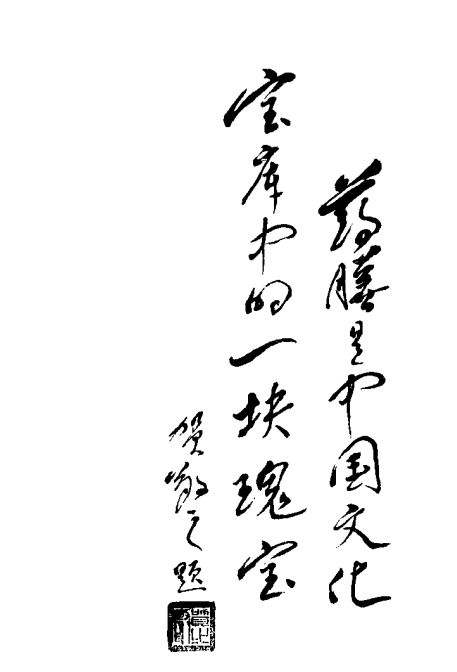 药膳是中国文化
宝库中的一块瑰宝
贺敬之题